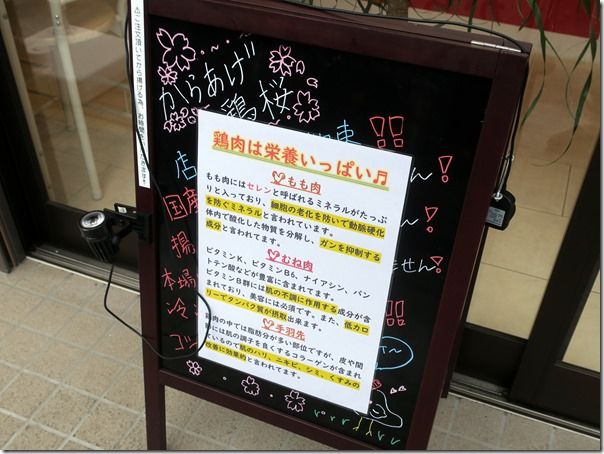 △ご注文頂いてから揚げる為、お時間を
からあげ
鶏桜
鶏肉は栄養いっぱい♬
もも肉
もも肉にはセレンと呼ばれるミネラルがたっぷ
りと入っており、細胞の老化を防いで動脈硬化
を防ぐミネラルと言われています。
体内で酸化した物質を分解し、ガンを抑制する
成分と言われてます。
むね肉
ビタミンK、ビタミンB6、ナイアシン、パン
トテン酸などが豊富に含まれてます。
ビタミンB群には肌の不調に作用する成分が含
まれており、美容には必須です。また、低カロ
リーでタンパク質が摂取出来ます。
手羽先
鶏肉の中では脂肪分が多い部位ですが、皮や関
節には肌の調子を良くするコラーゲンが含まれ
ているので肌のハリ、ニキビ、シミ、くすみの
改善に効果的と言われてます。
店
国産
揚
本場
冷
ん!
ん!
せん!